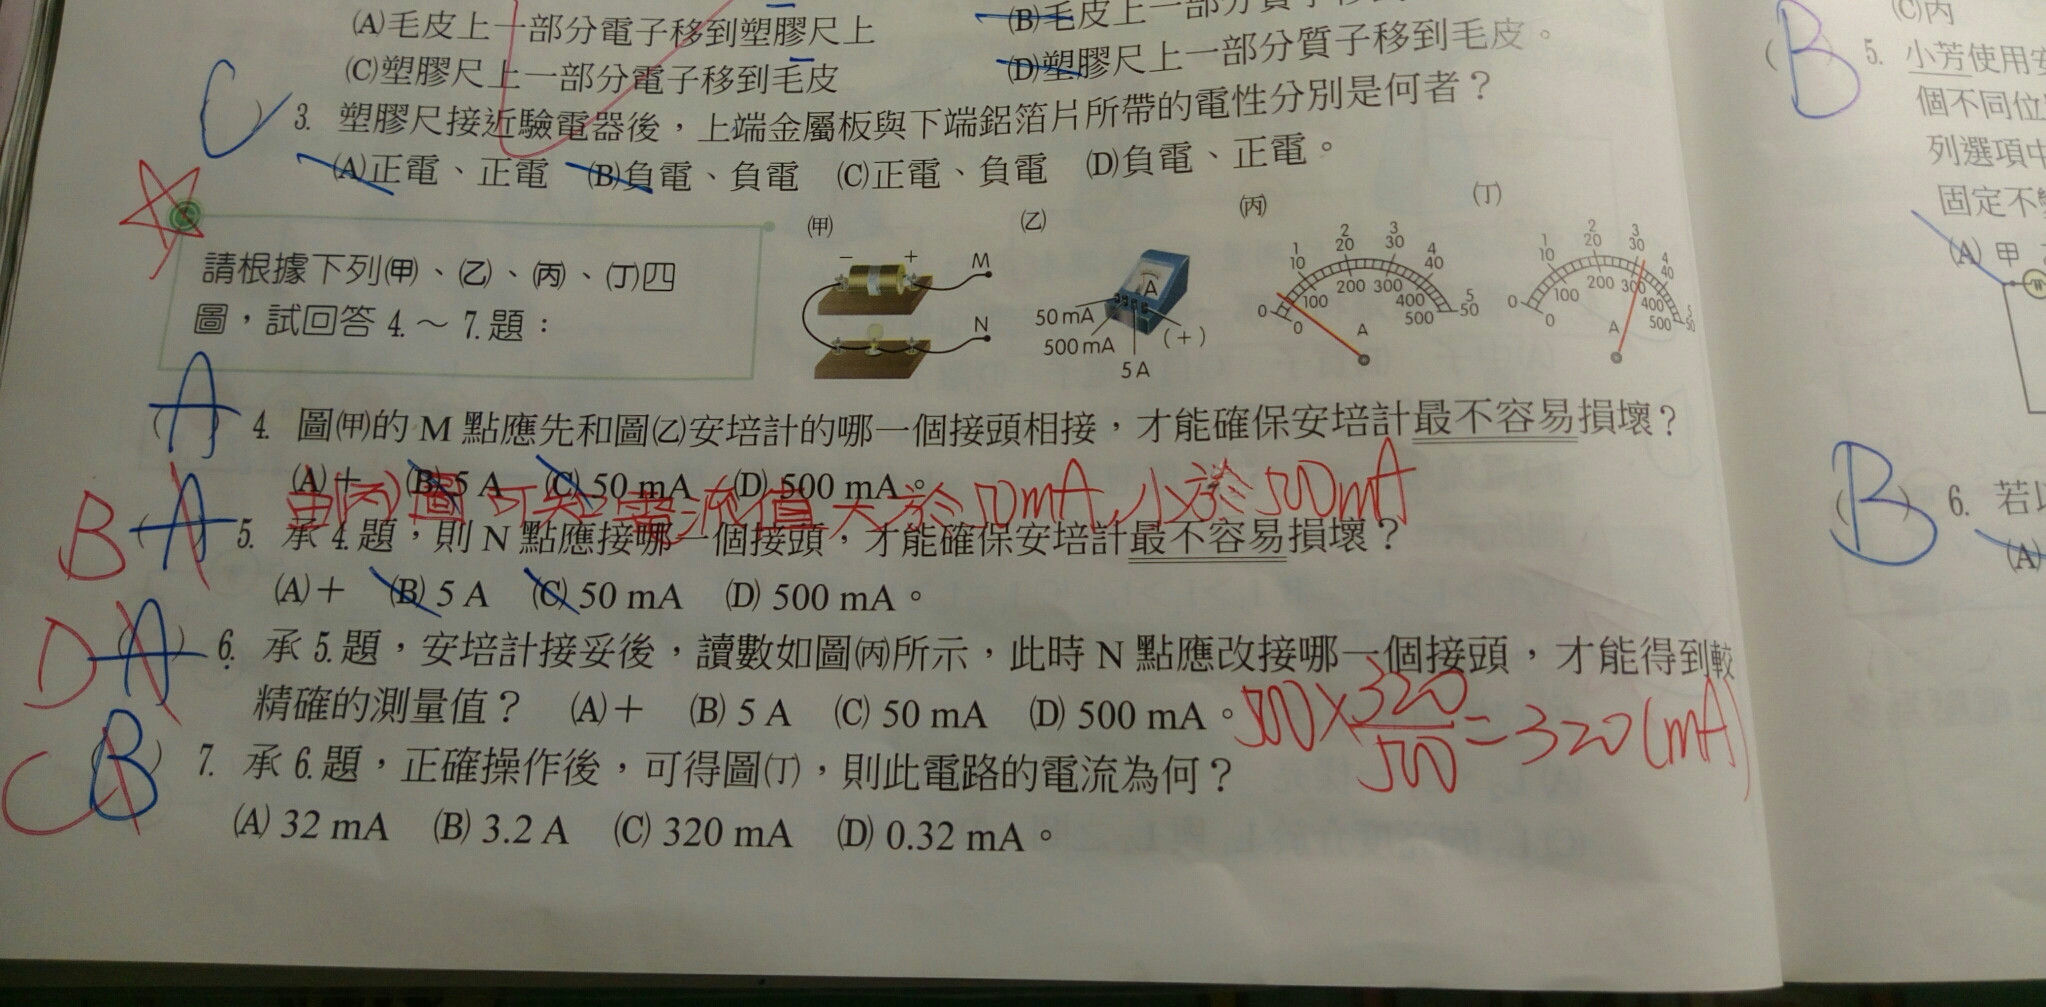 (A)毛皮上一部分電子移到塑膠尺上
(B)毛皮上一部分質子移
(C)塑膠尺上一部分電子移到毛皮
(D)塑膠尺上一部分質子移到毛皮。
C
( ) 3. 塑膠尺接近驗電器後，上端金屬板與下端鋁箔片所帶的電性分別是何者？
(A)正電、正電 (B)負電、負電 (C)正電、負電 (D)負電、正電。
請根據下列(甲)、(乙)、(丙)、(丁)四
圖，試回答 4.～ 7.題：
(甲)
− +
M
N
(乙)
A
50 mA
500 mA
5 A
(+)
(丙)
0 1 2 3 4 5
10 20 30 40 50
0 100 200 300 400 500
A
(丁)
0 1 2 3 4 5
10 20 30 40 50
0 100 200 300 400 500
A
A
( ) 4. 圖(甲)的 M 點應先和圖(乙)安培計的哪一個接頭相接，才能確保安培計最不容易損壞？
(A)＋ (B) 5 A (C) 50 mA (D) 500 mA。
由(丙)圖可知電流值大於50mA,小於500mA
B A
( ) 5. 承 4.題，則 N 點應接哪一個接頭，才能確保安培計最不容易損壞？
(A)＋ (B) 5 A (C) 50 mA (D) 500 mA。
D A
( ) 6. 承 5.題，安培計接妥後，讀數如圖(丙)所示，此時 N 點應改接哪一個接頭，才能得到較
精確的測量值？ (A)＋ (B) 5 A (C) 50 mA (D) 500 mA。
500×320/500=320(mA)
C B
( ) 7. 承 6.題，正確操作後，可得圖(丁)，則此電路的電流為何？
(A) 32 mA (B) 3.2 A (C) 320 mA (D) 0.32 mA。
(C)丙
B
( ) 5. 小芳使用安
個不同位
列選項中
固定不變
(A) 甲
B
( ) 6. 若以
(A)